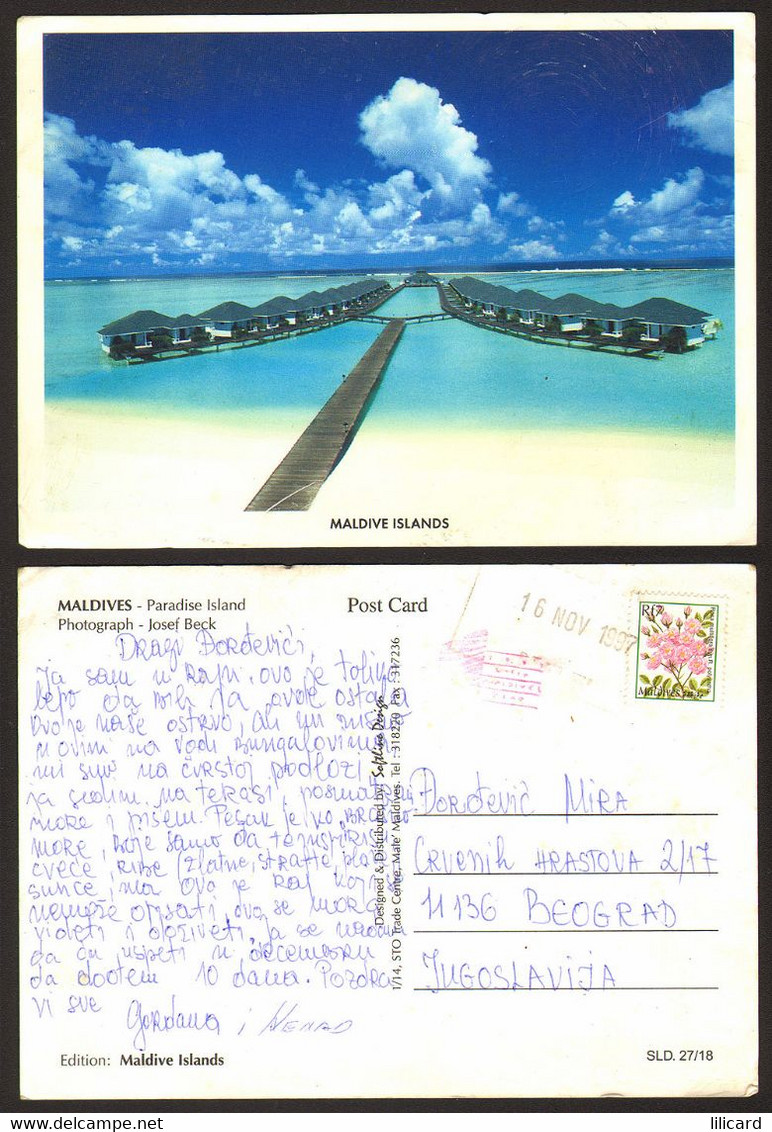 MALDIVE ISLANDS
MALDIVES - Paradise Island
Photograph - Josef Beck
Post Card
16 NOV 1997
Rf7
Maldives
Dragi Đorđevići,
Ja sam u raju, ovo je toliko
lepo da bih ja ovde ostala
Ovo je naše ostrvo, ali mi nismo
u ovim na vodi bungalovima
mi smo na čvrstoj podlozi
ja sedim na terasi, posmatram
more i pišem. Pesak je ko
more, boje samo da
cveće, ribe (zlatne,
sunce, ma ovo je raj koji se
nemože opisati, ovo se mora
videti i doživeti. Ja se nadam
da ću uspeti u decembru
da dođem 10 dana. Pozdrav
vi sve
Gordana i Nenad
Designed & Distributed by: Softline Design
1/14, STO Trade Centre, Male' Maldives. Tel : 318229 Fax : 317236
Đorđević Mira
Crvenih Hrastova 2/17
11136 Beograd
Jugoslavija
Edition: Maldive Islands
SLD. 27/18
lilicard